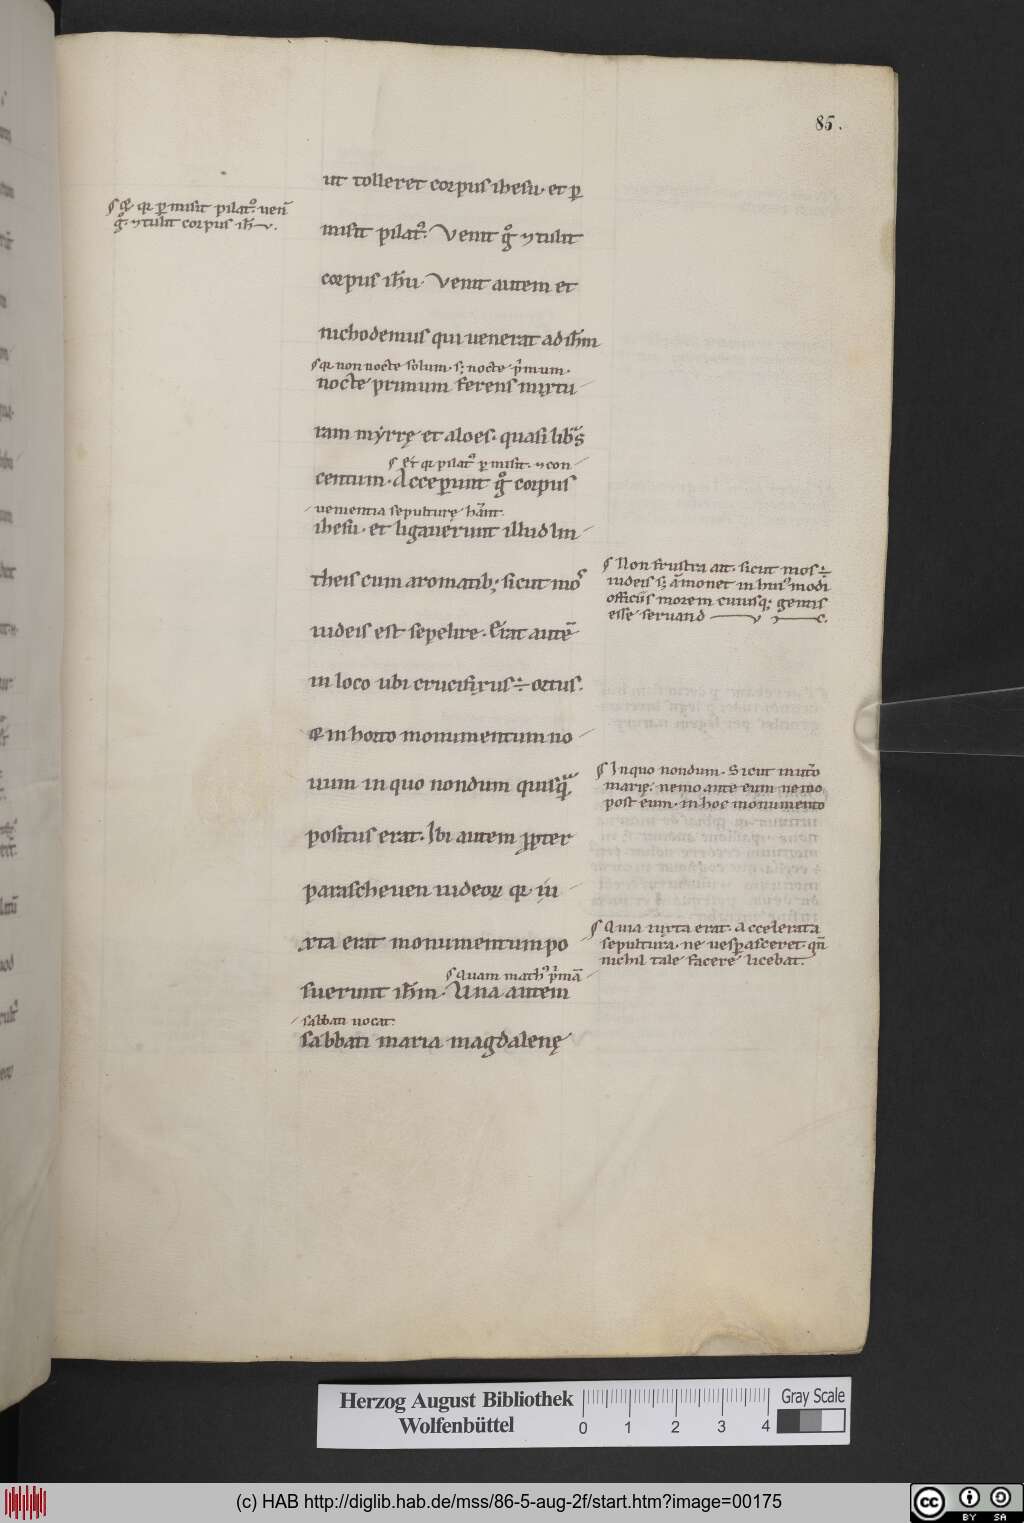 85.
ut tolleret corpus ihesu. et ꝑ
misit pilatꝰ. Venit g̊ ⁊ tulit
corpus ih̅u. Venit autem et
nichodemus qui uenerat ad ih̅m
qr non nocte solum. s; nocte p̅mum.
nocte primum ferens mixtu
ram myrrę et aloes. quasi lib̅s
Et qr pilatꝰ ꝑmisit. ⁊ con
centum. Acceꝑunt g̊ corpus
uenientia sepulturę hn̅t.
ihesu. et ligauerunt illud lin
theis cum aromatib; sicut mos
iudeis est sepelire. Erat autē
in loco ubi crucifixus ÷ ortus.
& in horto monumentum no
uum in quo nondum quisq̃
positus erat. Ibi autem ꝓpter
parascheuen iudeoꝝ qr iu
xta erat monumentum po
Quam mathꝰ p̅mā
suerunt ih̅m. Una autem
sabbati uocat.
sabbati maria magdalenę
qr ꝑmisit pilatꝰ. uen̅
g̊. ⁊ tulit corpus ih̅u.
Non frustra ait. sicut mos ÷
iudeis s; ām̅onet in huiꝰmodi
officiis morem cuiusq; gentis
esse seruand
In quo nondum. Sicut in utō
marię. nemo ante eum nemo
post eum. in hoc monumento
Quia iuxta erat. Accelerata
sepultura. ne uesꝑasceret. qn̄
nichil tale facere licebat.
Herzog August Bibliothek
Wolfenbüttel
0 1 2 3 4
Gray Scale
(c) HAB http://diglib.hab.de/mss/86-5-aug-2f/start.htm?image=00175
cc BY SA